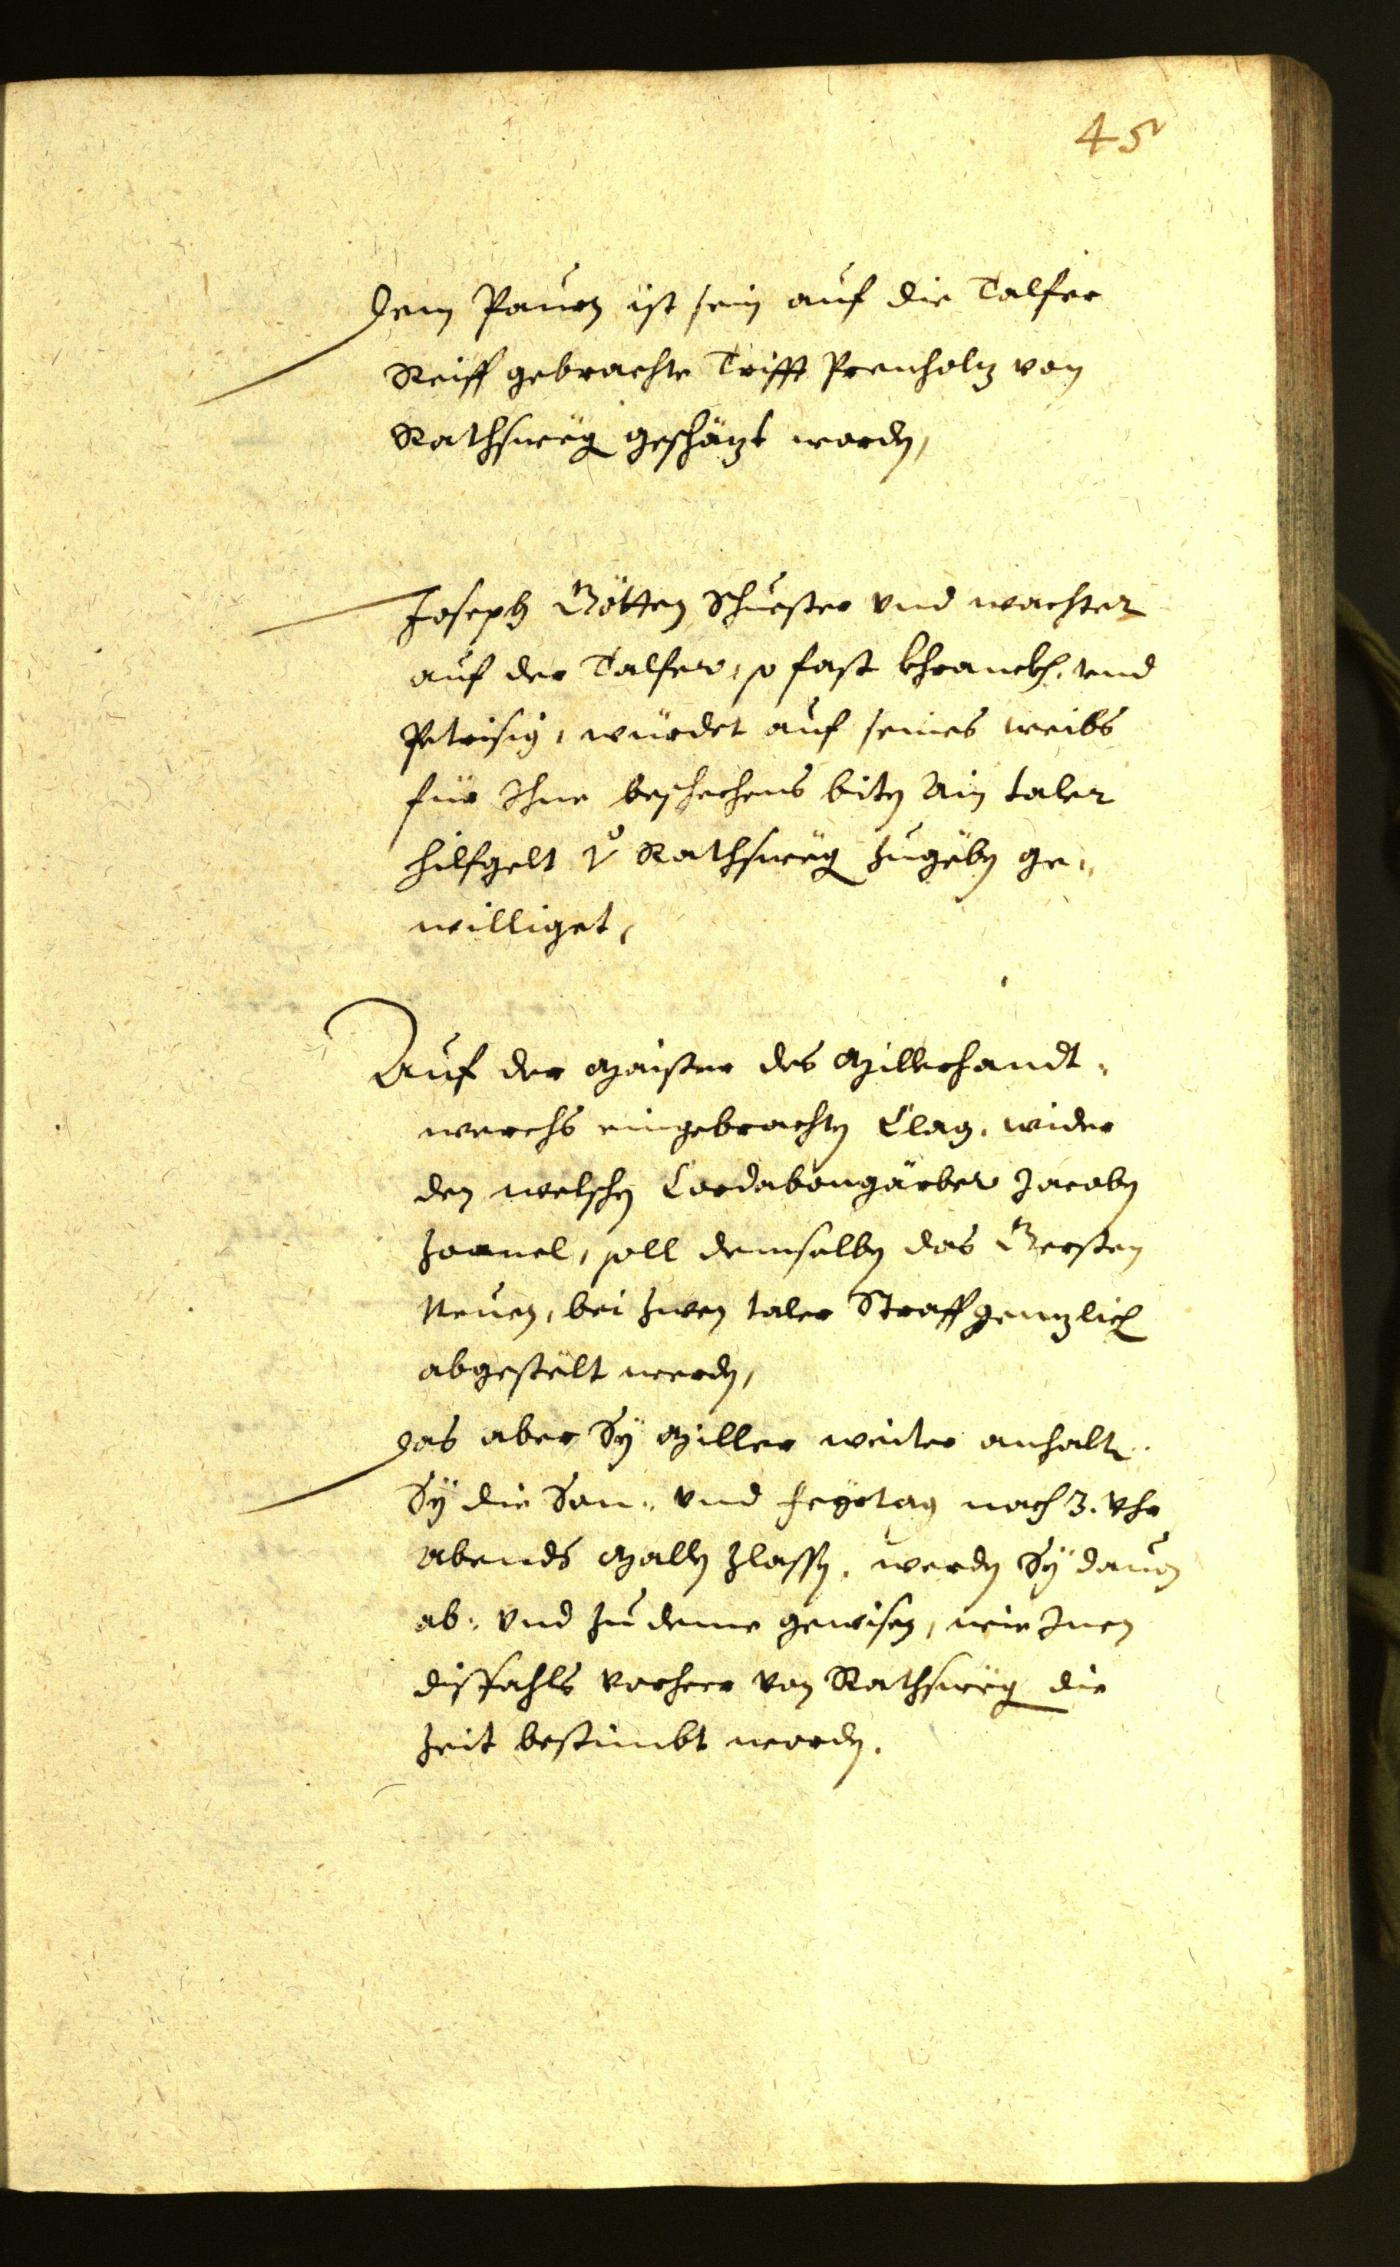 45
Dem Paurn ist sein auf die Talfer
Reiff gebrachte Trifft Prenholz von
Rathsweg geschäzt worden,
Joseph Götten Schuester vnd wachter
auf der Talfer, so fast khranckh, vnd
Petrisig, würdet auf seines weibs
für Ihne beschechens biten Ain taler
hilfgelt v Rathsweg zugeben ge-
williget,
Auf der Maister des Millerhandt-
werchs eingebrachten Clag, wider
den welschen Cordabongärber Jacoben
soll demselben das Gersten
Neuen, bei zwen taler Straff genzlich
abgestelt werden,
Das aber Sy Miller weiter anhalten
Sy die Son- vnd Feyrtag nach 3. Vhr
Abends Mallen zlassen, werden Sy dauon
ab- vnd zu deme gewisen, wie Inen
dissfahls vorherr von Rathsweg die
zeit bestimbt worden.